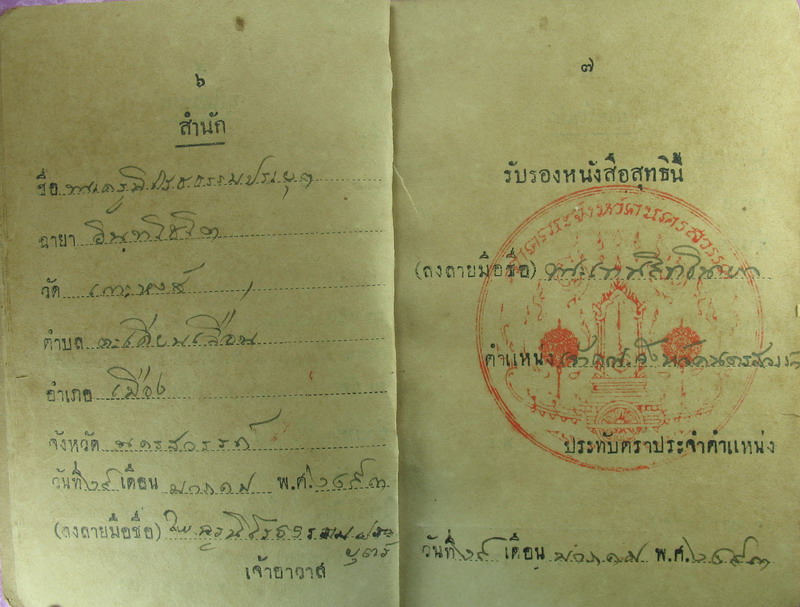 ๖
สำนัก
ชื่อ พระครูนิโรธธรรมประยุต
ฉายา อินฺทโชโต
วัด เกาะหงส์
ตำบล ตะเคียนเลื่อน
อำเภอ เมือง
จังหวัด นครสวรรค์
วันที่ ๒๙ เดือน มกราคม พ.ศ. ๒๔๙๓
(ลงลายมือชื่อ) พระครูนิโรธธรรมประ
ยุตร์
เจ้าอาวาส
๗
รับรองหนังสือสุทธินี้
(ลงลายมือชื่อ) พระเทพสิทธินายก
ตำแหน่ง เจ้าคณะจังหวัดนครสวรรค์
ประทับตราประจำตำแหน่ง
วันที่ ๒๙ เดือน มกราคม พ.ศ. ๒๔๙๓